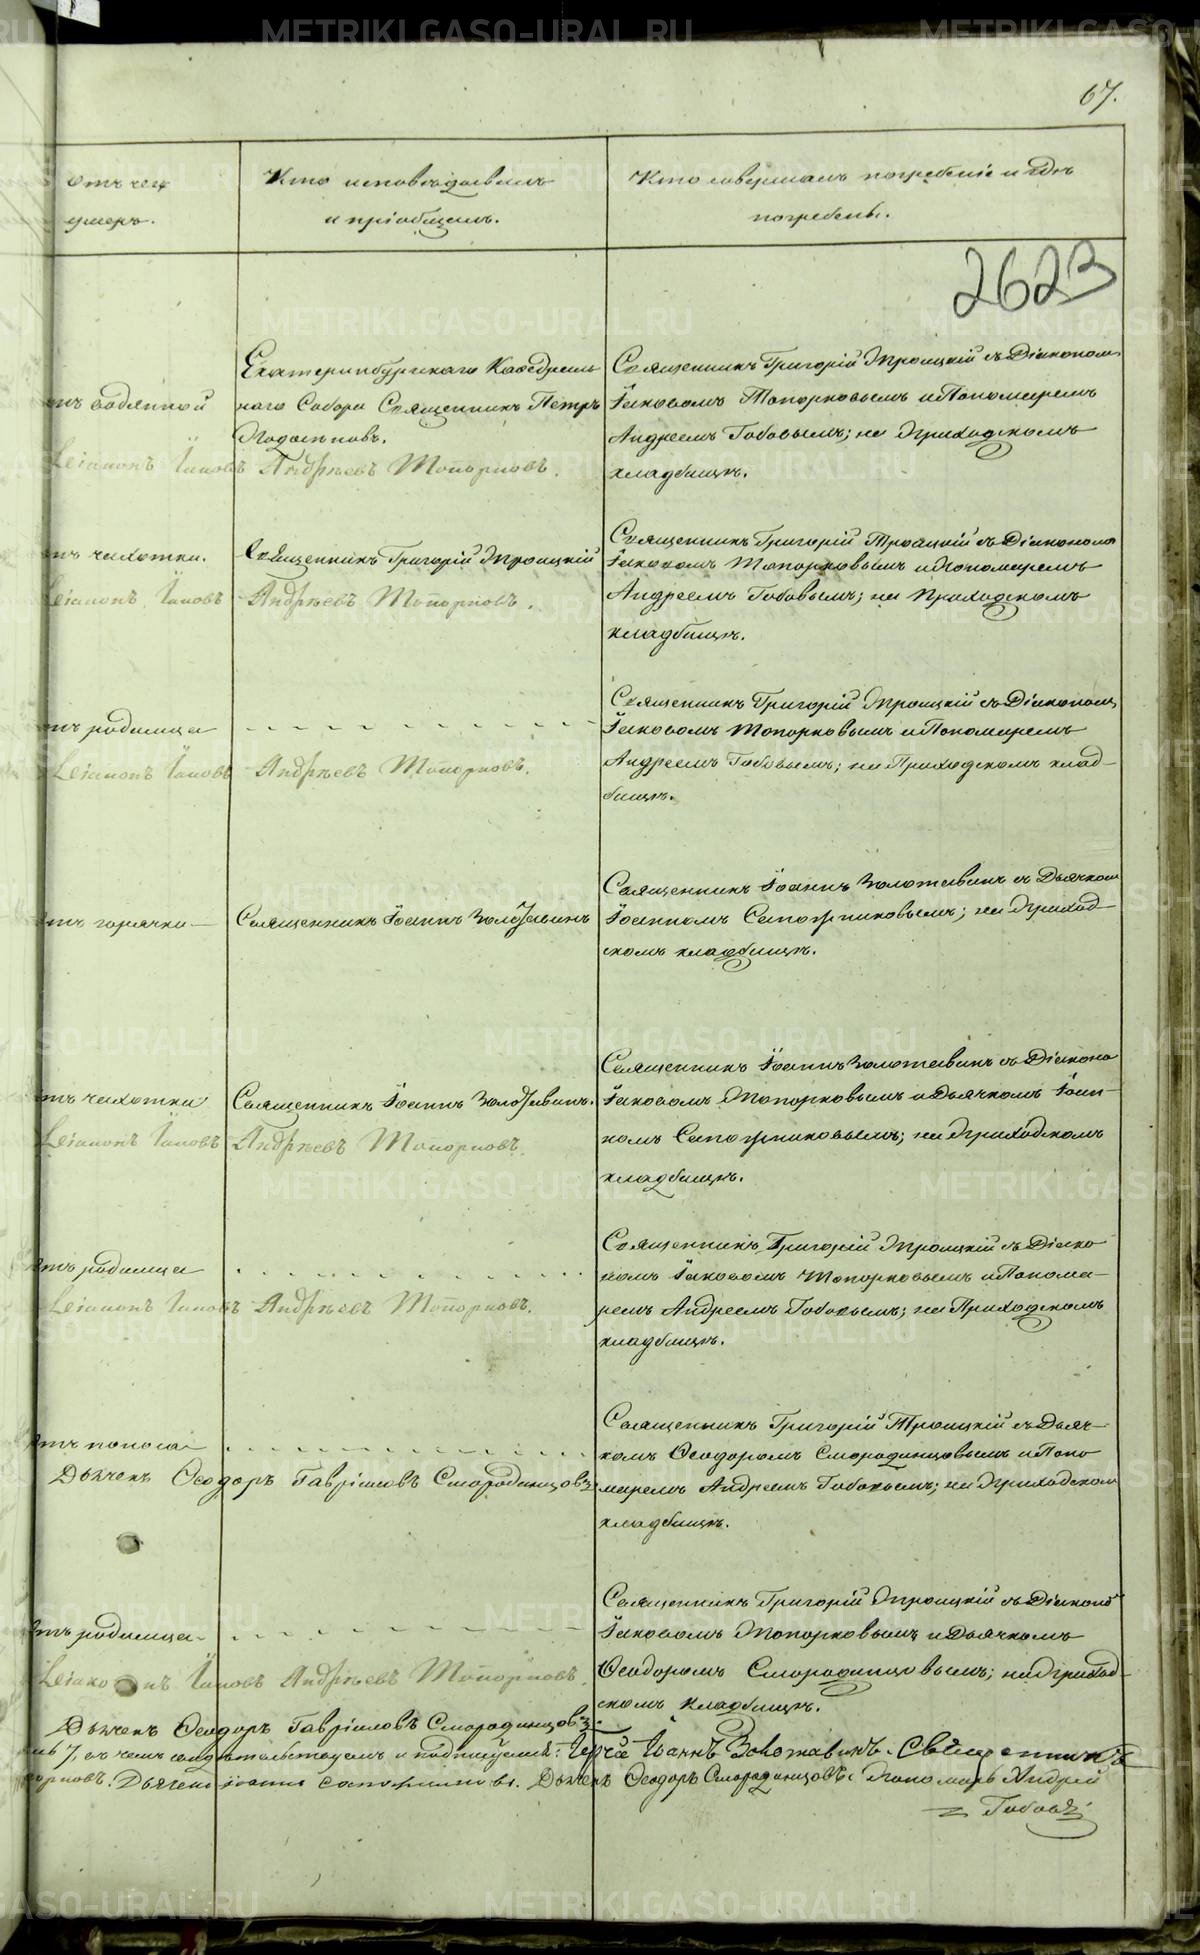 67.
Отъ чего
умеръ.
Кто исповѣдывалъ
и пріобщалъ.
Кто совершалъ погребеніе и гдѣ
погребены.
2623
отъ водяной
Екатеринбургскаго Каѳедраль
наго Собора Священникъ Петръ
Священникъ Григорій Троицкій съ Діакономъ
Іаковомъ Топорковымъ и Пономаремъ
Андреемъ Бобовымъ; на Приходскомъ
кладбищѣ.
Діаконъ Іаковъ Андрѣевъ Топорковъ.
отъ чахотки.
Священникъ Григорій Троицкій
Священникъ Григорій Троицкій съ Діакономъ
Іаковомъ Топорковымъ и Пономаремъ
Андреемъ Бобовымъ; на Приходскомъ
кладбищѣ.
Діаконъ Іаковъ Андрѣевъ Топорковъ.
отъ родимца
Священникъ Григорій Троицкій съ Діакономъ
Іаковомъ Топорковымъ и Пономаремъ
Андреемъ Бобовымъ; на Приходскомъ клад-
бищѣ.
Діаконъ Іаковъ Андрѣевъ Топорковъ.
отъ горячки
Священникъ Іоаннъ Золотавинъ
Священникъ Іоаннъ Золотавинъ съ Дьячкомъ
Іоанномъ Сапожниковымъ; на Приход-
скомъ кладбищѣ.
отъ чахотки
Священникъ Іоаннъ Золотавинъ.
Священникъ Іоаннъ Золотавинъ съ Діакономъ
Іаковомъ Топорковымъ и Дьячкомъ Іоан-
номъ Сапожниковымъ; на Приходскомъ
кладбищѣ.
Діаконъ Іаковъ Андрѣевъ Топорковъ.
отъ родимца
Священникъ Григорій Троицкій съ Діако
номъ Іаковомъ Топорковымъ и Понома-
ремъ Андреемъ Бобовымъ; на Приходскомъ
кладбищѣ.
Діаконъ Іаковъ Андрѣевъ Топорковъ.
отъ поноса
Священникъ Григорій Троицкій съ Дьяч-
комъ Ѳеодоромъ Смородинцовымъ и Поно
маремъ Андреемъ Бобовымъ; на Приходскомъ
кладбищѣ.
Дьячекъ Ѳеодоръ Гавріиловъ Смородинцовъ
отъ родимца
Священникъ Григорій Троицкій съ Діакономъ
Іаковомъ Топорковымъ и Дьячкомъ
Ѳеодоромъ Смородинцовымъ; на Приход-
скомъ кладбищѣ.
Діаконъ Іаковъ Андрѣевъ Топорковъ.
Дьячекъ Ѳеодоръ Гавріиловъ Смородинцовъ.
въ чемъ свидѣтельствуемъ и подписуемся: Іерей Іоаннъ Золотавинъ. Священникъ
Дьячекъ Іоаннъ Сапожниковъ. Дьячекъ Ѳеодоръ Смородинцовъ. Пономарь Андрей
Бобовъ.
METRIKI.GASO-URAL.RU